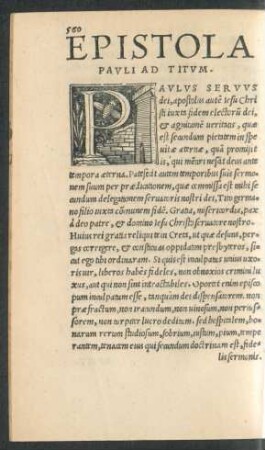 560
EPISTOLA
PAVLI AD TITVM.
PAVLVS SERVVS
dei, apostolus autē Iesu Chri
sti iuxta fidem electorū dei,
& agnitionē veritatis, quæ
est secundum pietatem in spe
vitæ æternæ, quā promisit
is, qui mētiri nescit deus ante
tempora æterna. Patefecit autem temporibus suis sermo
nem suum per prædicationem, quæ commissa est mihi se
cundum delegationem seruatoris nostri dei, Tito germa
no filio iuxta cōmunem fidē. Gratia, misericordia, pax
à deo patre, & domino Iesu Christo seruatore nostro.
Huius rei gratia reliqui te in Creta, ut quæ desunt, per
gas corrigere, & constituas oppidatim presbyteros, si
cut ego tibi ordinaram. Si quis est inculpatus unius uxo
ris uir, liberos habēs fideles, non obnoxios crimini lu
xus, aut qui non sint intractabiles. Oportet enim episco
pum inculpatum esse, tanquàm dei dispensatorem. non
præfractum, non iracundum, non uinosum, non percus
sorem, non turpiter lucro deditum. sed hospitalem, bo
narum rerum studiosum, sobrium, iustum, pium, tempe
rantem, tenacem eius qui secundum doctrinam est, fide
lis sermonis.